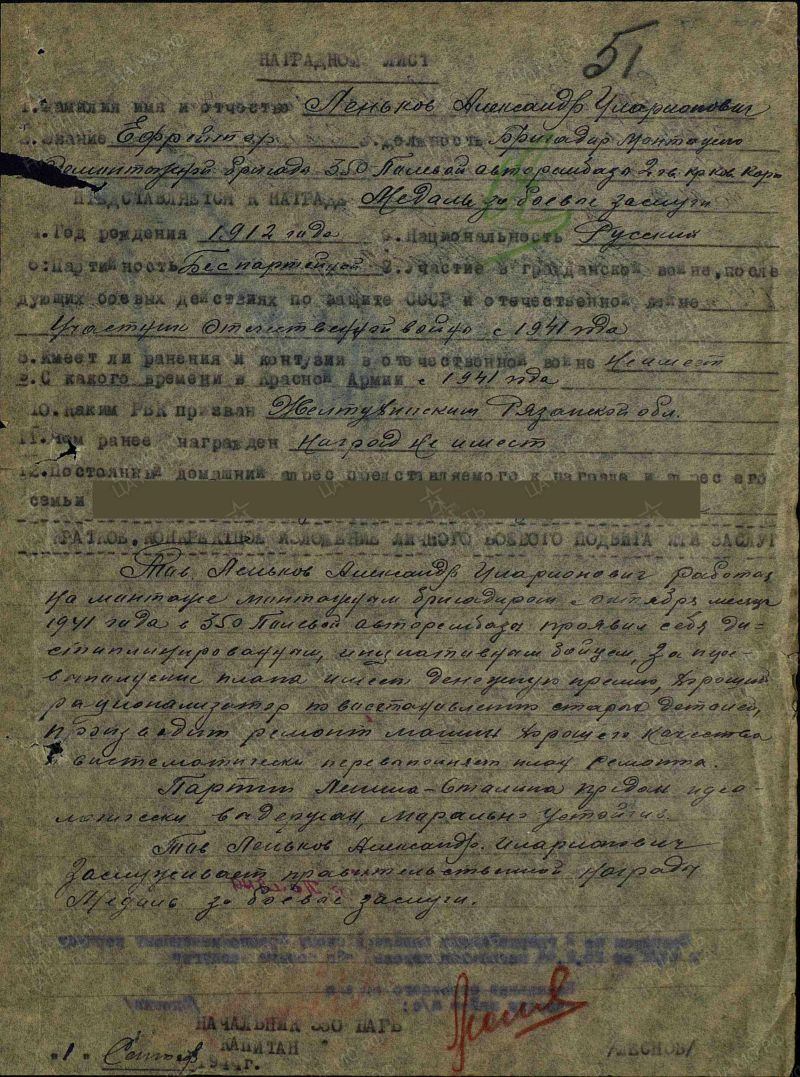 51
НАГРАДНОЙ ЛИСТ
1. Фамилия имя и отчество Леньков Александр Иларионович
2. Звание Ефрейтор 3. должность Бригадир монтажно
Демонтажной бригады 350 Палевой авторембаза 2 гв. кр. ков. кор.
ПРЕДСТАВЛЯЕТСЯ К НАГРАДЕ Медаль за боевые заслуги
4. Год рождения 1912 года 5. Национальность Русский
6. Партийность Беспартейной 7. Участие в гражданской войне, после
дующих боевых действиях по защите СССР и отечественной войне
Участник отечественной войны с 1941 года
8. Имеет ли ранения и контузии в отечественной войне не имеет
9. С какого времени в Красной Армии с 1941 года
10. Каким РВК призван Рязанской обл.
11. Чем ранее награжден наград не имеет
12. Постоянный домашний адрес представляемого к награде и адрес его
семьи
КРАТКОЕ, КОНКРЕТНОЕ ИЗЛОЖЕНИЕ ЛИЧНОГО БОЕВОГО ПОДВИГА ИЛИ ЗАСЛУГ
Тов. Леньков Александр Иларионович работая
на монтаже бригадиром с октября месяца
1941 года в 350 Палевой авторембаза проявил себя ди-
сциплинированным, инициативным бойцем. За пере-
выполнение плана имеет денежную премию, хороший
рационализатор по восстановлению старых деталей,
производит ремонт машин хорошего качества
и систематически перевыполняет план ремонта.
Партии Ленина-Сталина предан идео-
логически выдержан, морально устойчив.
Тов Леньков Александр Иларионович
Заслуживает правительственной награды
Медаль за боевые заслуги.
НАЧАЛЬНИК 350 ПАРБ
КАПИТАН /ЛЕСНОВ/
"1" 1944 г.